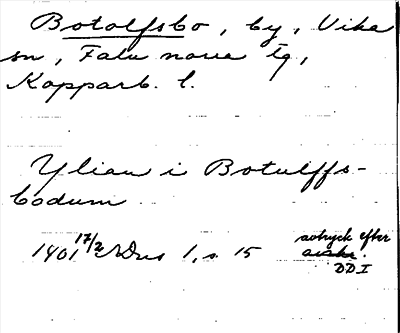 Botolfsbo, by, Vika
sn, Falu norra tg,
Kopparb. l.
Ylian i Botulffs-
bodum
1401 17/2 SDns 1, s. 15
avtryck efter
DD I